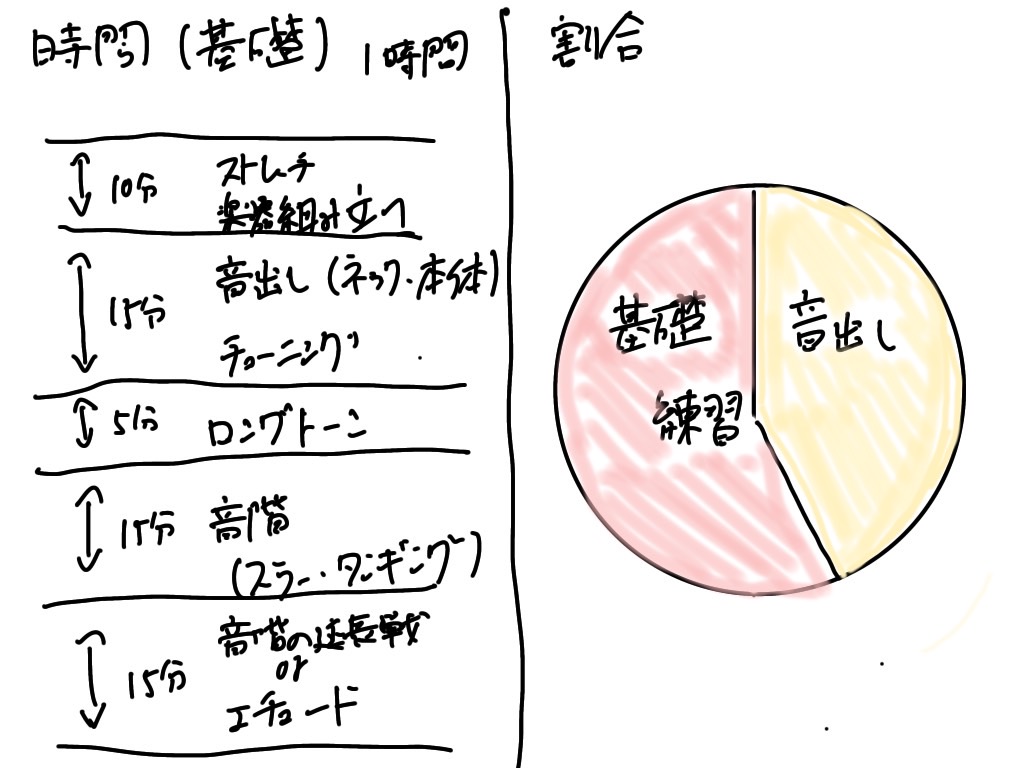 時間(基礎) 1時間
10分 ストレッチ
楽器組み立て
15分 音出し(ネック・本体)
チューニング
5分 ロングトーン
15分 音階
(スラー・タンギング)
15分 音階の延長戦
or
エチュード
割合
基礎
練習
音出し